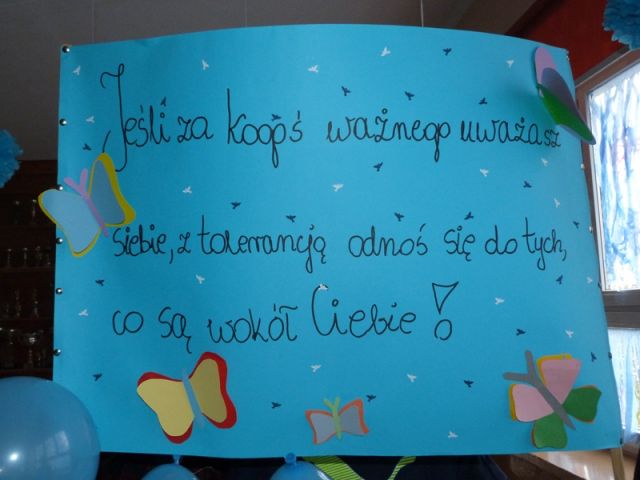 Jeśli za kogoś ważnego uważasz
siebie, z tolerrancją odnoś się do tych,
co są wokół Ciebie!